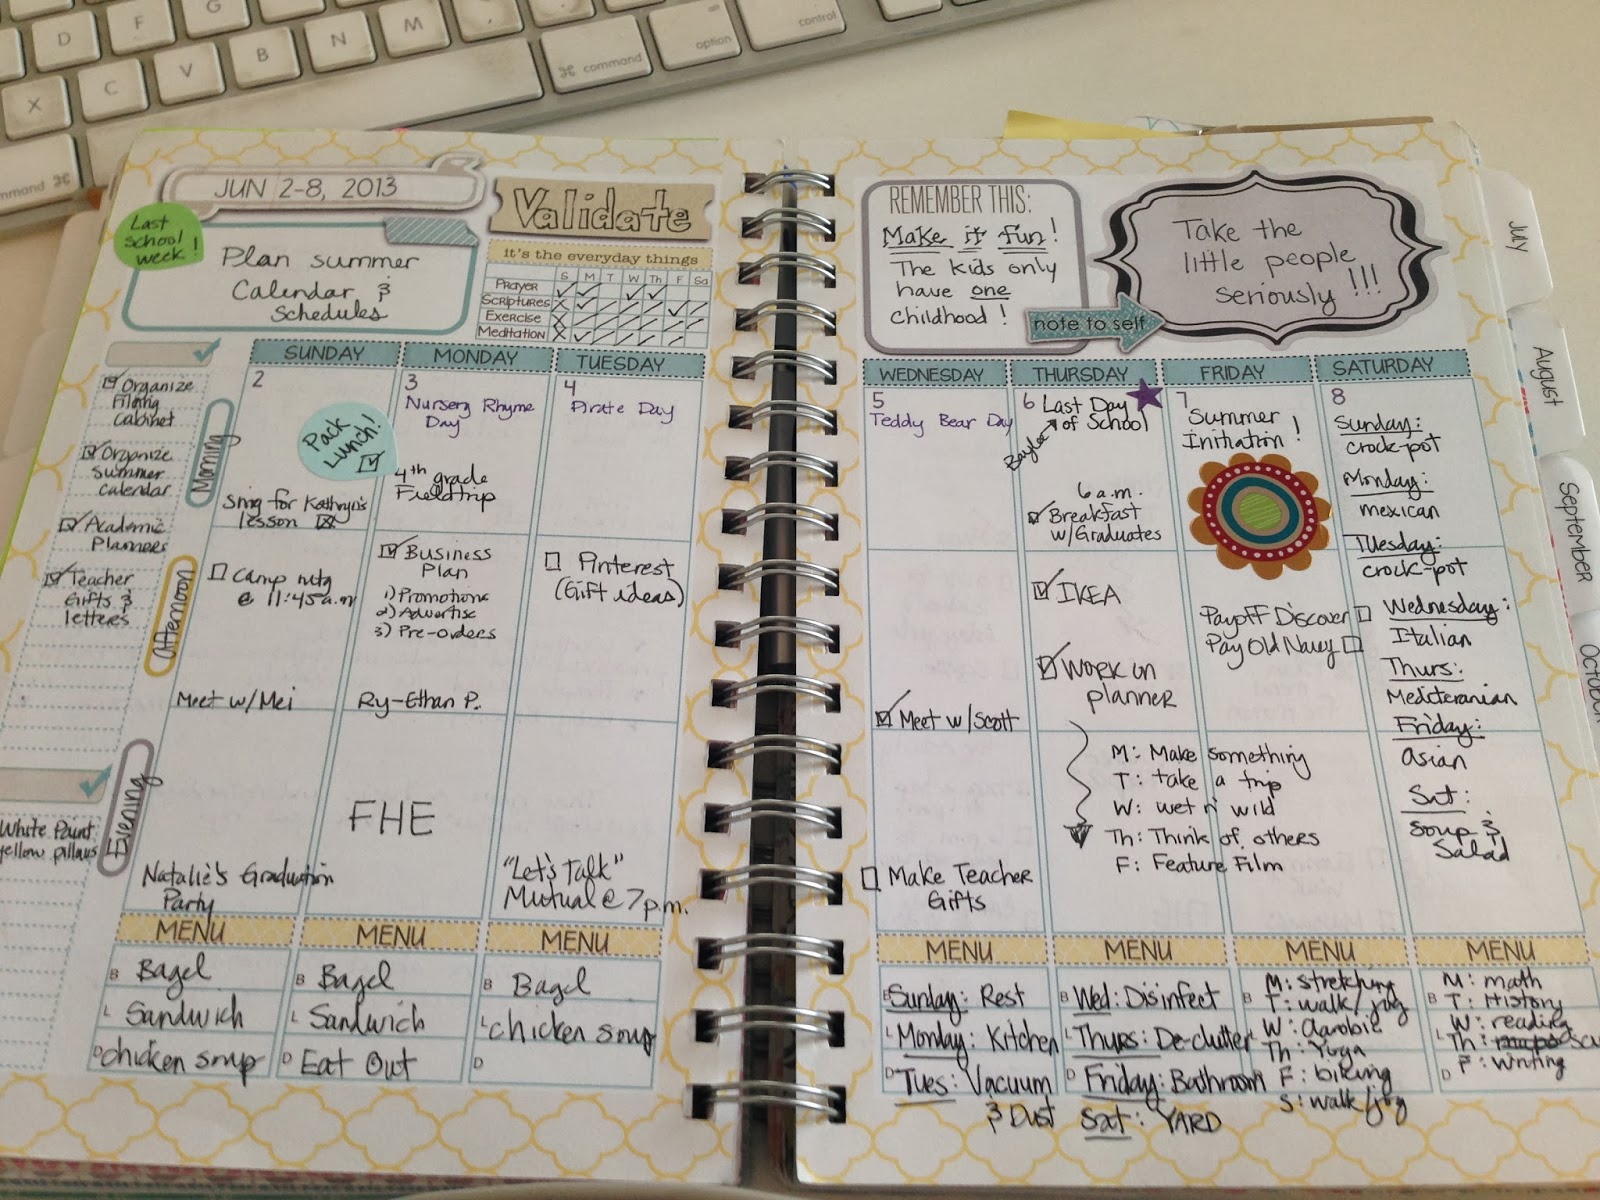 D
F
G
H
J
X
C
V
B
N
M
command
option
control
command
July
August
September
October
JUN 2-8, 2013
Last
school
week!
Plan summer
Calendar &
Schedules
Validate
it's the everyday things
S M T W Th F Sa
Prayer
Scriptures
Exercise
Meditation
REMEMBER THIS:
Make it fun!
The kids only
have one
childhood!
note to self
Take the
little people
seriously!!!
Organize
Filing
Cabinet
Organize
summer
calendar
Academic
Planners
Teacher
Gifts &
letters
White Paint
yellow pillows
Morning
Afternoon
Evening
SUNDAY
2
Pack
Lunch!
Sing for Kathryn's
lesson
Camp mtg
@ 11:45 a.m
Meet w/Mei
Natalie's Graduation
Party
MONDAY
3
Nursery Rhyme
Day
4th grade
Fieldtrip
Business
Plan
1) Promotions
2) Advertise
3) Pre-orders
Ry-Ethan P.
FHE
TUESDAY
4
Pirate Day
Pinterest
(Gift ideas)
"Let's Talk"
Mutual @ 7 p.m.
WEDNESDAY
5
Teddy Bear Day
Meet w/Scott
Make Teacher
Gifts
THURSDAY
6 Last Day
of School
6 a.m.
Breakfast
w/Graduates
IKEA
Work on
planner
M: Make something
T: take a trip
W: wet n' wild
Th: Think of others
F: Feature Film
FRIDAY
7
Summer
Initiation!
Payoff Discover
Pay Old Navy
SATURDAY
8
Sunday:
crock-pot
Monday:
mexican
Tuesday:
crock-pot
Wednesday:
Italian
Thurs:
Mediteranian
Friday:
asian
Sat:
Soup &
Salad
MENU
B Bagel
L Sandwich
D chicken soup
MENU
B Bagel
L Sandwich
D Eat Out
MENU
B Bagel
L chicken soup
D
MENU
B Sunday: Rest
L Monday: Kitchen
D Tues: Vacuum
& Dust
MENU
B Wed: Disinfect
L Thurs: De-clutter
D Friday: Bathroom
Sat: YARD
MENU
M: stretching
B T: walk/jog
W: aerobic
L Th: Yoga
D F: biking
S: walk/jog
MENU
M: math
B T: History
W: reading
L Th:
F: writing
D